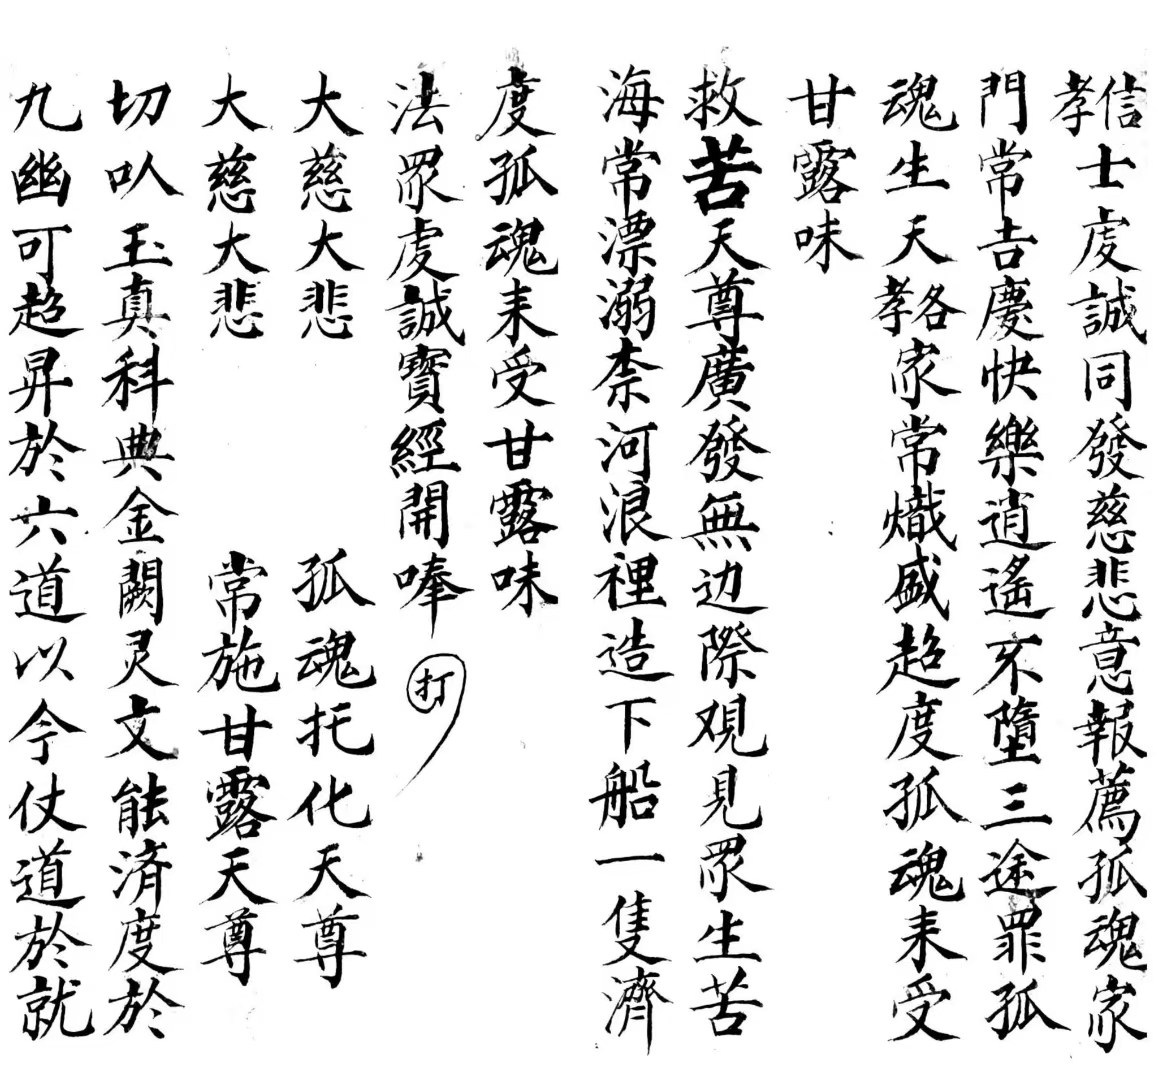 信孝士虔誠同發慈悲意報薦孤魂家
門常吉慶快樂逍遙不墮三途罪孤
魂生天各孝家常熾盛超度孤魂来受
甘露味
救苦天尊廣發無边際观見眾生苦
海常漂溺柰河浪裡造下船一隻濟
度孤魂来受甘露味
法眾虔誠寳經開唪 打
大慈大悲 孤魂托化天尊
大慈大悲 常施甘露天尊
切㕥玉真科典金闕灵文能済度於
九幽可超昇於六道以今仗道於就